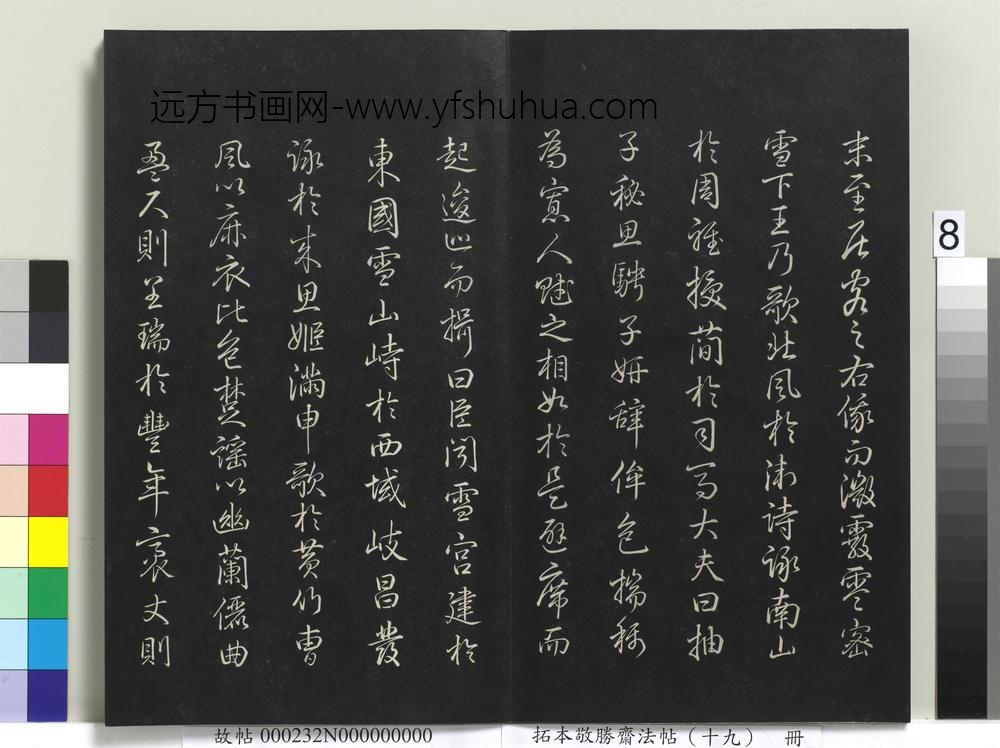 远方书画网-www.yfshuhua.com
末至居客之右俄而微霰零密
雪下王乃歌北風於衛詩詠南山
於周雅授簡於司馬大夫曰抽
子秘思騁子妍辭侔色揣稱
為寡人賦之相如於是避席而
起逡巡而揖曰臣聞雪宮建於
東國雪山峙於西域岐昌發
詠於来思姬滿申歌於黄竹曹
風以麻衣比色楚謠以幽蘭儷曲
盈尺則呈瑞於豐年袤丈則
8
故帖 000232N000000000
拓本敬勝齋法帖（十九） 冊